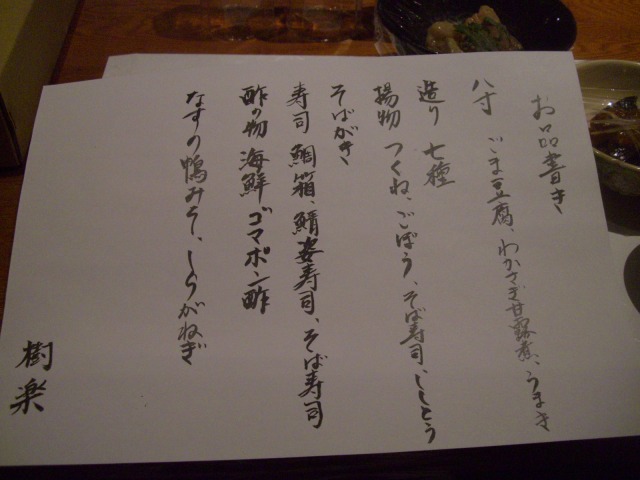 お品書き
八寸 ごま豆腐、わかさぎ甘露煮、うまき
造り 七種
揚物 つくね、ごぼう、そば寿司、ししとう
そばがき
寿司 鯛箱、鯖姿寿司、そば寿司
酢の物 海鮮ゴマポン酢
なすの鴨みそ、しらがねぎ
樹楽